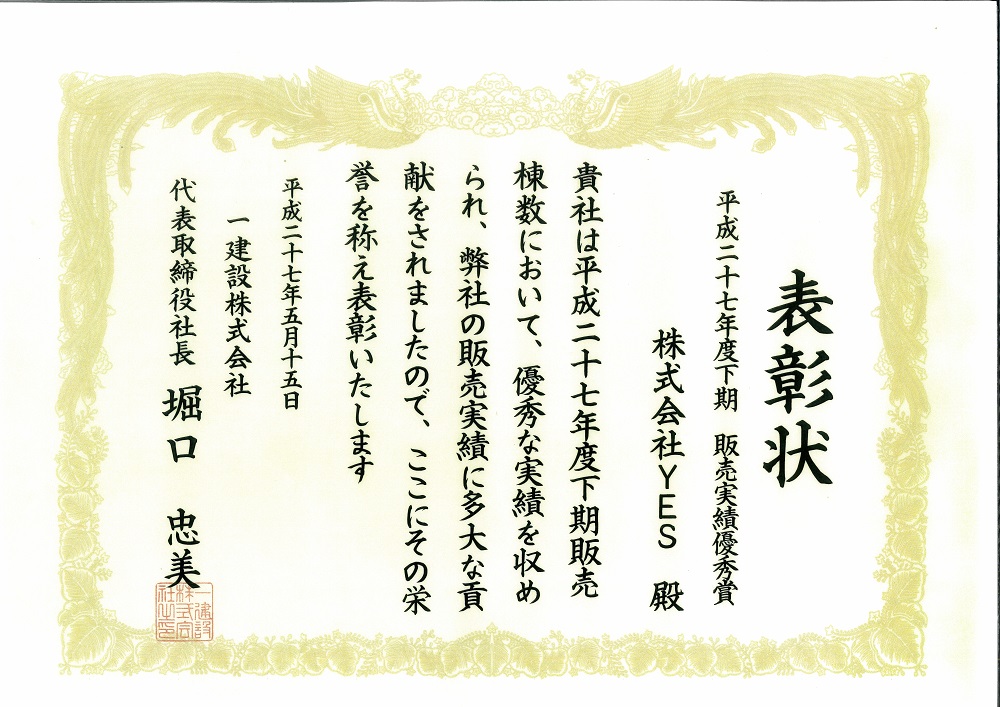 表彰状
平成二十七年度下期 販売実績優秀賞
株式会社YES 殿
貴社は平成二十七年度下期販売
棟数において、優秀な実績を収め
られ、弊社の販売実績に多大な貢
献をされましたので、ここにその栄
誉を称え表彰いたします
平成二十七年五月十五日
一建設株式会社
代表取締役社長 堀口 忠美
一建設
株式会
社之印